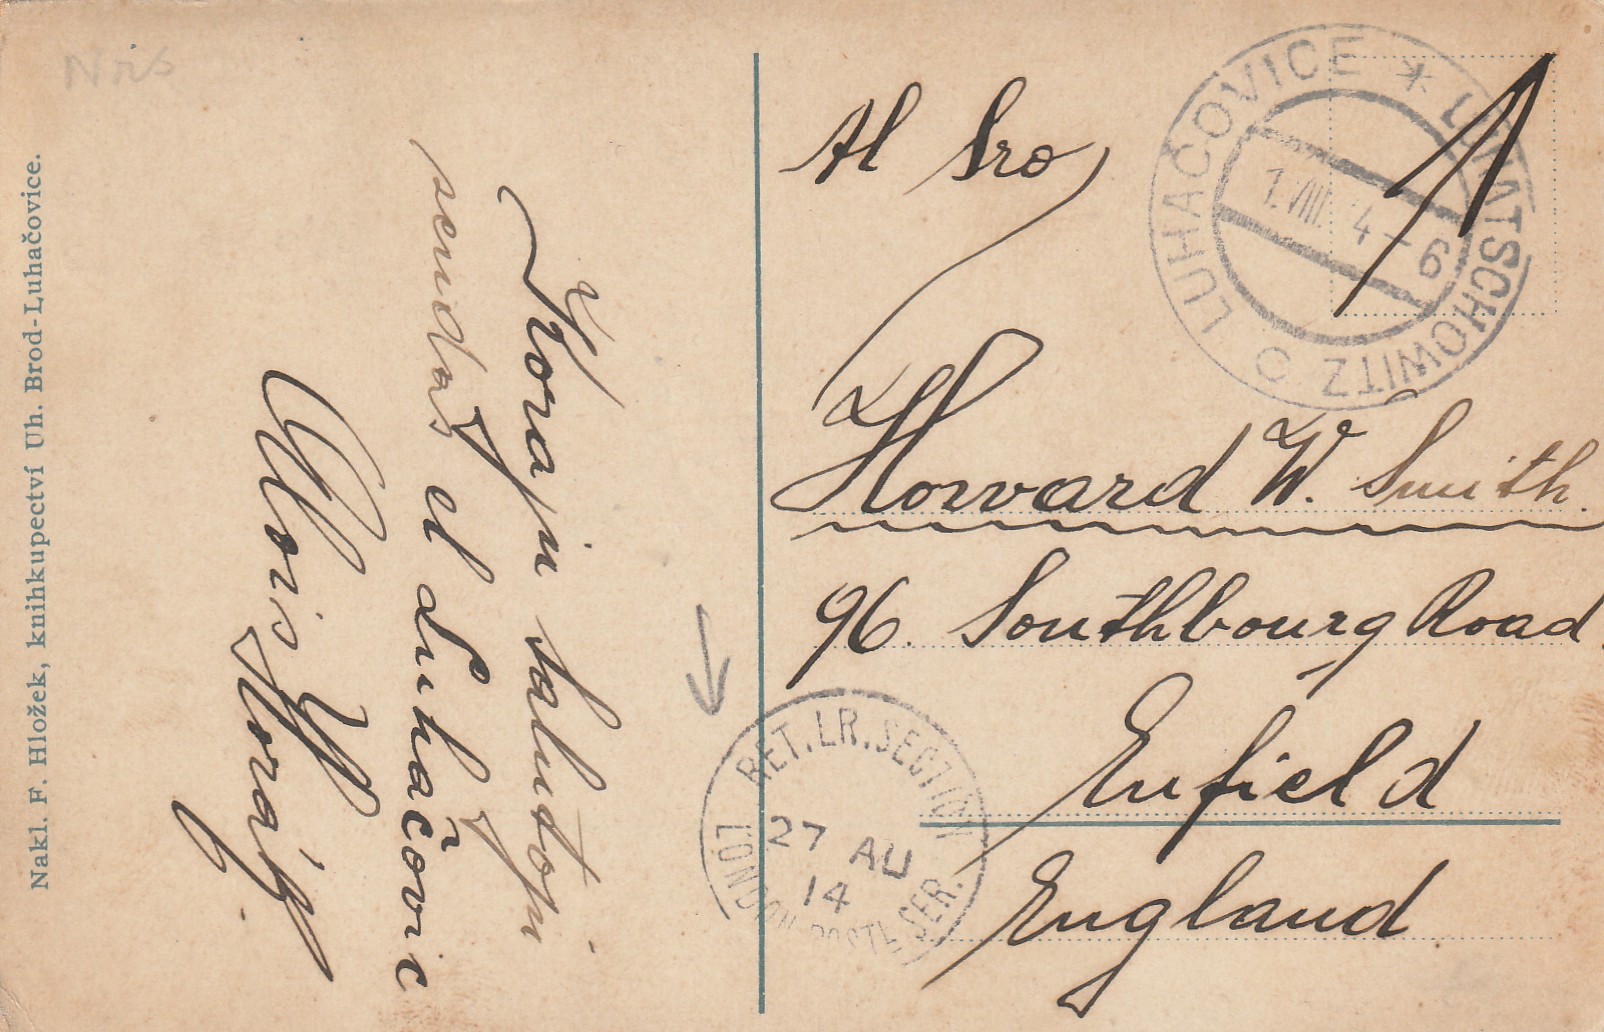 Nakl. F. Hložek, knihkupectví Uh. Brod-Luhačovice.
Korajn salutojn
sendas el Luhačovic
Alois
LUHAČOVICE * LUHATSCHOWITZ
1.VIII. 4-6
1
Al Sro
Howard W. Smith.
96. Southbourg Road
Enfield
England.
RET. LR. SECTION
27 AU
14
LONDON POSTL SER.